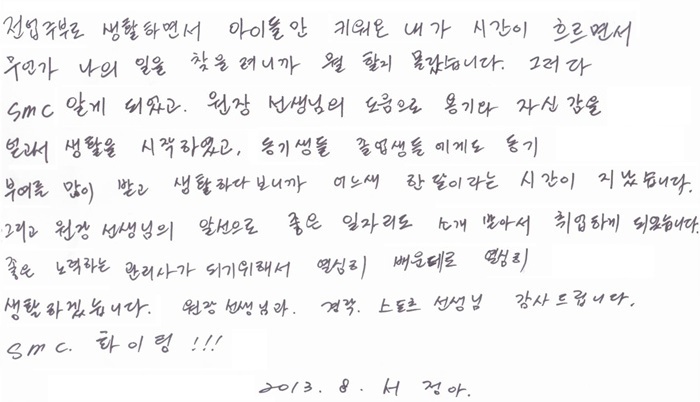 전업주부로 생활하면서 아이들만 키워온 내가 시간이 흐르면서
무언가 나의 일을 찾을려니까 뭘 할지 몰랐습니다. 그러다
smc 알게 되었고. 원장 선생님의 도움으로 용기와 자신감을
얻고서 생활을 시작하였고, 동기생들 졸업생들에게도 동기
부여를 많이 받고 생활하다보니까 어느새 한달이라는 시간이 지났습니다.
그리고 원장 선생님의 알선으로 좋은 일자리도 소개 받아서 취업하게 되었습니다.
좋은 노력하는 관리사가 되기위해서 열심히 배운데로 열심히
생활하겠습니다. 원장 선생님과. 경락. 스포츠 선성님 감사드립니다.
smc. 화이팅 !!!
2013. 8. 서 정아.